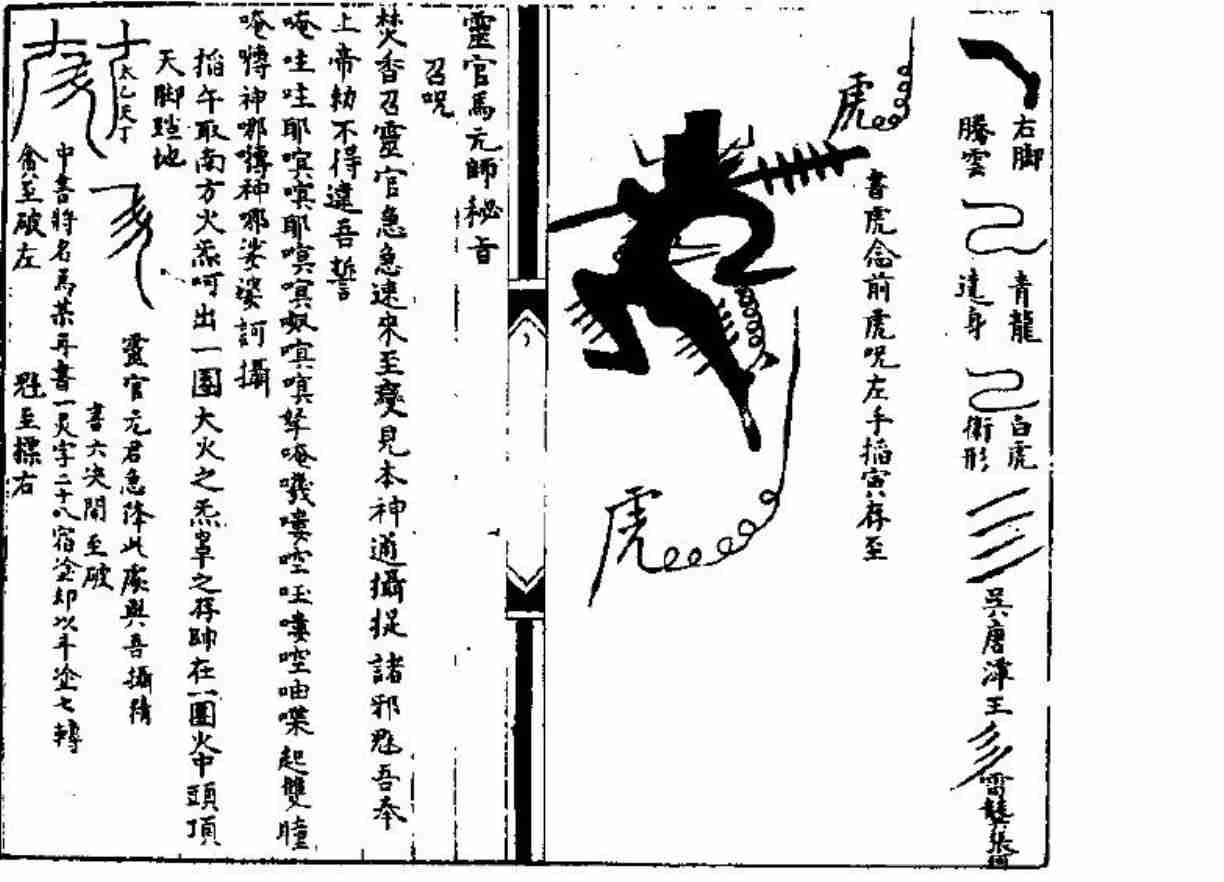 右脚
騰雲
青龍
遶身
白虎
衛形
吳唐澤王
雷
書虎念前虎咒左手搯寅存至
虎
虎
靈官馬元帥秘旨
召咒
焚香召靈官急急速來至變見本神通攝捉諸邪魁吾奉
上帝勅不得違吾誓
唵哇哇耶嗔嗔耶嗔嗔奴嗔嗔拏唵
起雙瞳
唵
神哪
神哪娑婆訶攝
搯午取南方火炁呵出一團大火之炁罩之存帥在一團火中頭頂
天脚踏地
太乙天丁
靈官元君急降此處與吾攝精
書六決閉至破
中書將名馬某再書一炅字二十八宿塗却以斗塗七轉
禽至破左
魁至摽右